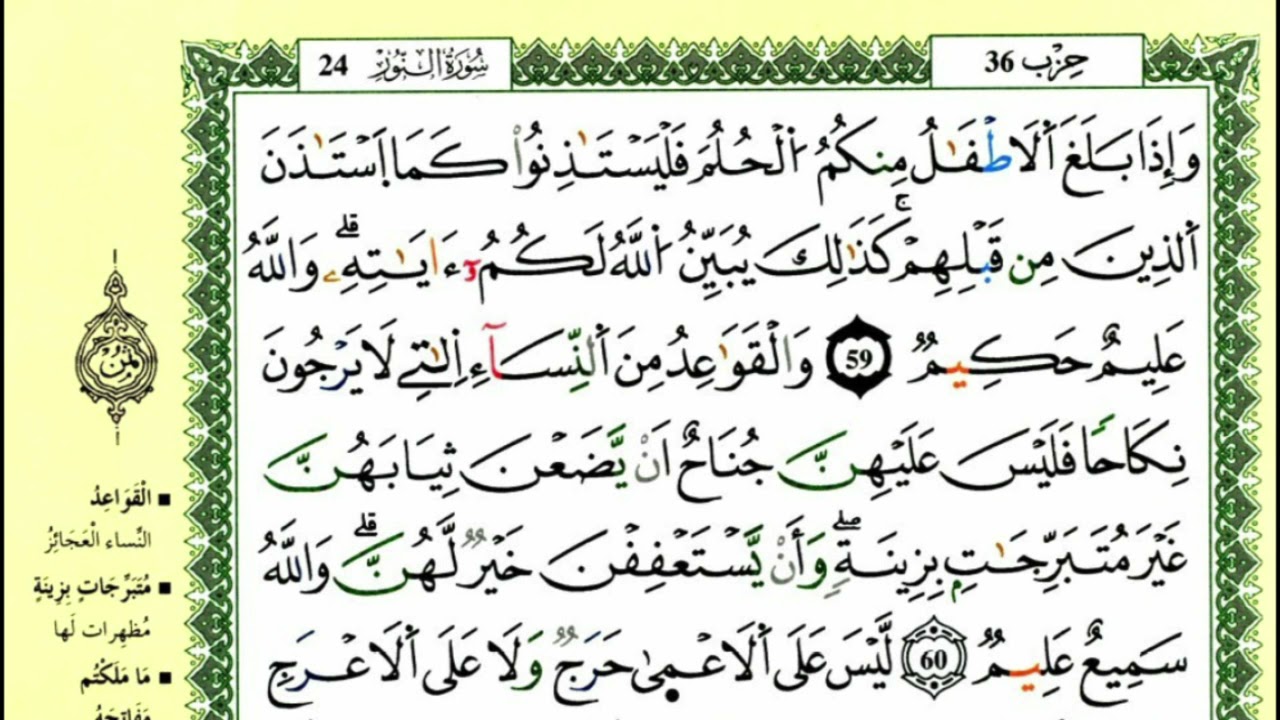 حِزْب 36
سُورَةُ النُّور 24
وَإِذَا بَلَغَ اَ۬لَاطْفَٰلُ مِنكُمُ اُ۬لْحُلُمَ فَلْيَسْتَٰذِنُواْ كَمَا اَسْتَٰذَنَ
اَ۬لذِينَ مِن قَبْلِهِمْۚ كَذَٰلِكَ يُبَيِّنُ اُ۬للَّهُ لَكُمُۥٓ ءَايَٰتِهِۦۗ وَاللَّهُ
عَلِيمٌ حَكِيمٌۖ 59 وَالْقَوَٰعِدُ مِنَ اَ۬لنِّسَآءِ اِ۬لتِے لَا يَرْجُونَ
نِكَاحاٗ فَلَيْسَ عَلَيْهِنَّ جُنَاحٌ اَنْ يَّضَعْنَ ثِيَابَهُنَّ
غَيْرَ مُتَبَرِّجَٰتِۢ بِزِينَةٖۖ وَأَنْ يَّسْتَعْفِفْنَ خَيْرٞ لَّهُنَّۗ وَاللَّهُ
سَمِيعٌ عَلِيمٌۖ 60 لَّيْسَ عَلَى اَ۬لَاعْم۪ىٰ حَرَجٞ وَلَا عَلَى اَ۬لَاعْرَجِ
ثُمُنْ
■ الْقَوَاعِدُ
النِّساء الْعَجَائِزُ
■ مُتَبَرِّجَاتٍ بِزِينَةٍ
مُظهِرات لَها
■ مَا مَلَكْتُم
مَفَاتِحَهُ